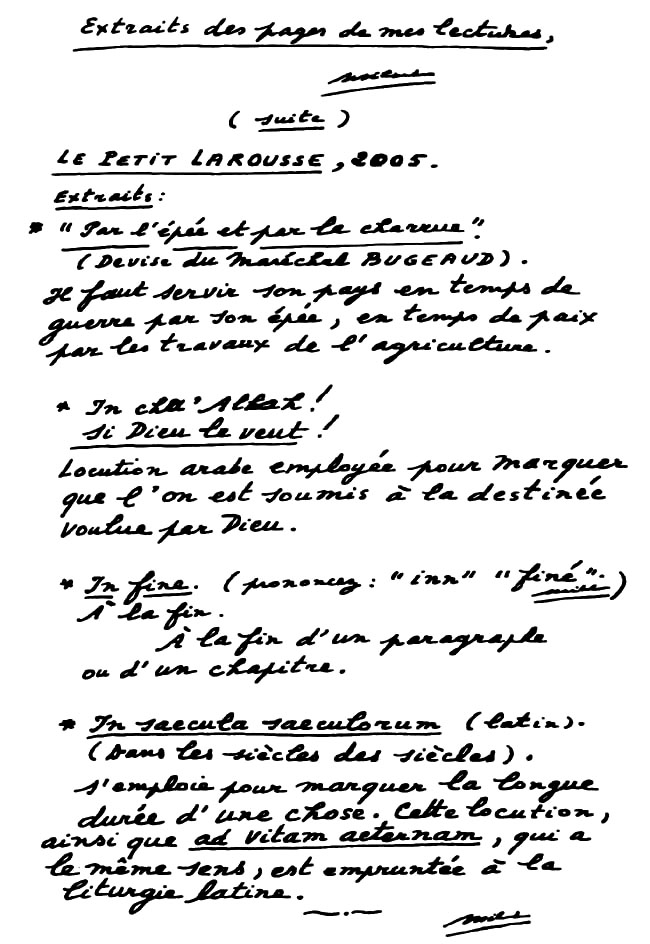 Extraits des pages de mes lectures,
( suite )
LE PETIT LAROUSSE, 2005.
Extraits :
* "Par l'épée et par la charrue".
(Devise du Maréchal BUGEAUD).
Il faut servir son pays en temps de
guerre par son épée, en temps de paix
par les travaux de l'agriculture.
* In cha' Allah !
Si Dieu le veut !
Locution arabe employée pour marquer
que l'on est soumis à la destinée
voulue par Dieu.
* In fine. (prononcez : "inn" "finé".)
À la fin.
À la fin d'un paragraphe
ou d'un chapitre.
* In saecula saeculorum (latin).
(Dans les siècles des siècles).
S'emploie pour marquer la longue
durée d'une chose. Cette locution,
ainsi que ad vitam aeternam, qui a
le même sens, est empruntée à la
liturgie latine.